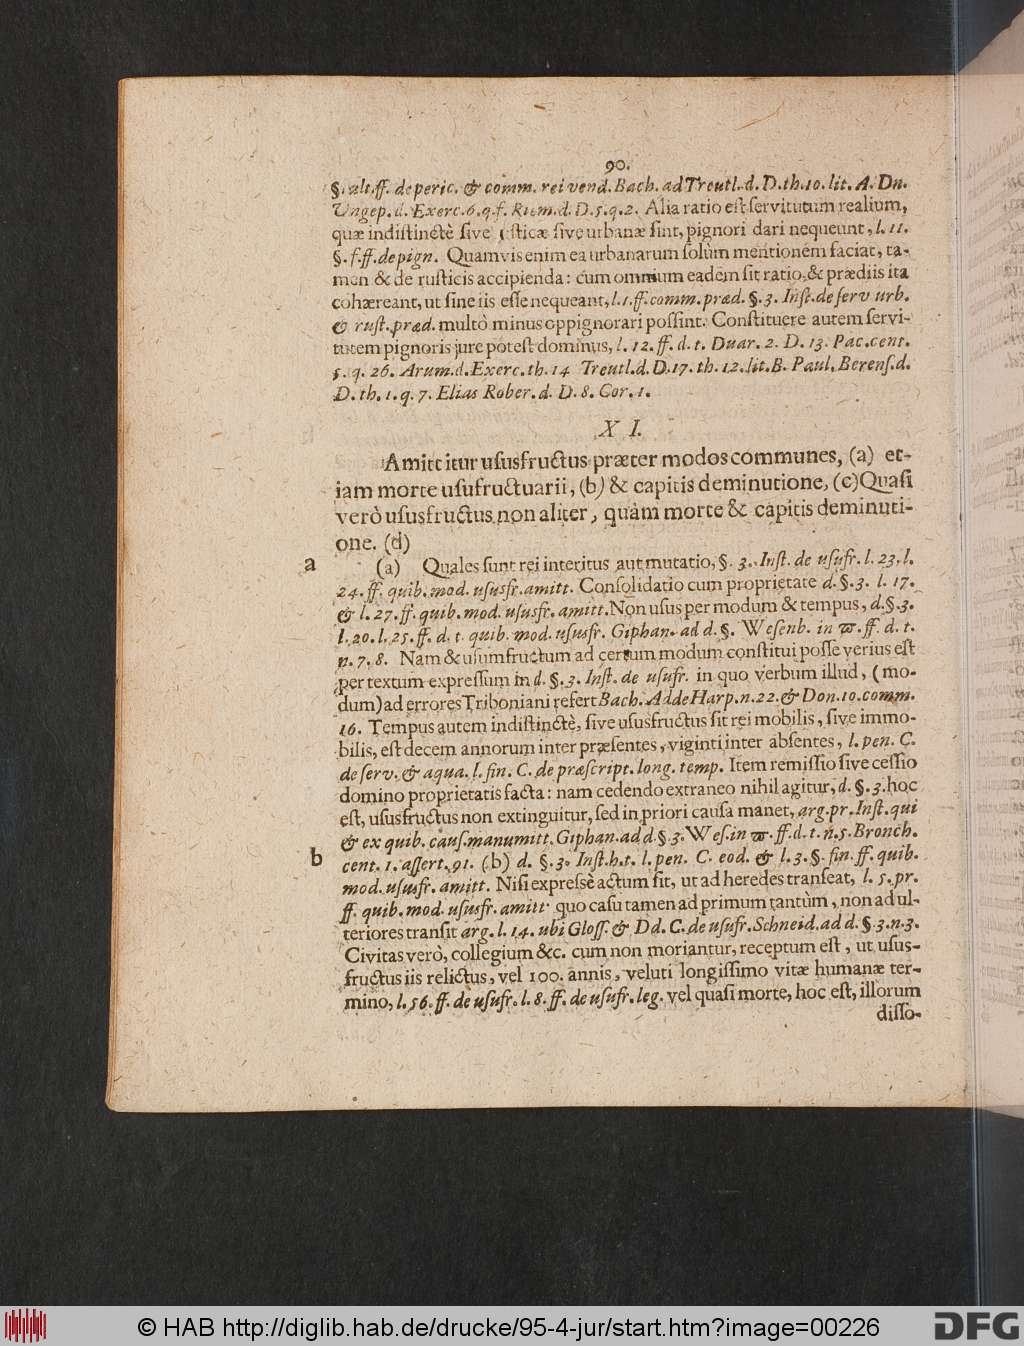 90.
§. ult. ff. de peric. & comm. rei vend. Bach. ad Treutl. d. D. th. 10. lit. A. Dn.
Ungep. d. Exerc. 6. q. f. Rum. d. D. 5. q. 2. Alia ratio est servitutum realium,
quæ indistinctè sive sticæ sive urbanæ sint, pignori dari nequeunt, l. 11.
§. f. ff. de pign. Quamvis enim ea urbanarum solùm mentionem faciat, ta-
men & de rusticis accipienda: cùm omnium eadem sit ratio, & prædiis ita
cohæreant, ut sine iis esse nequeant, l. 1. ff. comm. præd. §. 3. Inst. de serv urb.
& rust. præd. multò minus oppignorari possint. Constituere autem servi-
tutem pignoris jure potest dominus, l. 12. ff. d. t. Duar. 2. D. 13. Pac. cent.
5. q. 26. Arum. d. Exerc. th. 14 Treutl. d. D. 17. th. 12. lit. B. Paul. Berens. d.
D. th. 1. q. 7. Elias Rober. d. D. 8. Cor. 1.
X I.
Amittitur ususfructus præter modos communes, (a) et-
iam morte usufructuarii, (b) & capitis deminutione, (c) Quasi
verò ususfructus non aliter, quàm morte & capitis deminuti-
one. (d)
a (a) Quales sunt rei interitus aut mutatio, §. 3. Inst. de usufr. l. 23. l.
24. ff. quib. mod. ususfr. amitt. Consolidatio cum proprietate d. §. 3. l. 17.
& l. 27. ff. quib. mod. ususfr. amitt. Non usus per modum & tempus, d. §. 3.
l. 20. l. 25. ff. d. t. quib. mod. ususfr. Giphan. ad d. §. Wesenb. in ϖ. ff. d. t.
n. 7. 8. Nam & usumfructum ad certum modum constitui posse verius est
per textum expressum in d. §. 3. Inst. de usufr. in quo verbum illud, (mo-
dum) ad errores Triboniani refert Bach. Adde Harp. n. 22. & Don. 10. comm.
16. Tempus autem indistinctè, sive ususfructus sit rei mobilis, sive immo-
bilis, est decem annorum inter præsentes, viginti inter absentes, l. pen. C.
de serv. & aqua. l. fin. C. de præscript. long. temp. Item remissio sive cessio
domino proprietatis facta: nam cedendo extraneo nihil agitur, d. §. 3. hoc
est, ususfructus non extinguitur, sed in priori causa manet, arg. pr. Inst. qui
& ex quib. caus. manumitt. Giphan. ad d. §. 3. Wes. in ϖ. ff. d. t. n. 5. Bronch.
b cent. 1. assert. 91. (b) d. §. 3. Inst. h. t. l. pen. C. eod. & l. 3. §. fin. ff. quib.
mod. ususfr. amitt. Nisi expressè actum sit, ut ad heredes transeat, l. 5. pr.
ff. quib. mod. ususfr. amitt. quo casu tamen ad primum tantùm, non ad ul-
teriores transit arg. l. 14. ubi Gloss. & Dd. C. de usufr. Schneid. ad d. §. 3. n. 3.
Civitas verò, collegium &c. cum non moriantur, receptum est, ut usus-
fructus iis relictus, vel 100. annis, veluti longissimo vitæ humanæ ter-
mino, l. 56. ff. de usufr. l. 8. ff. de usufr. leg. vel quasi morte, hoc est, illorum
disso-
© HAB http://diglib.hab.de/drucke/95-4-jur/start.htm?image=00226
DFG